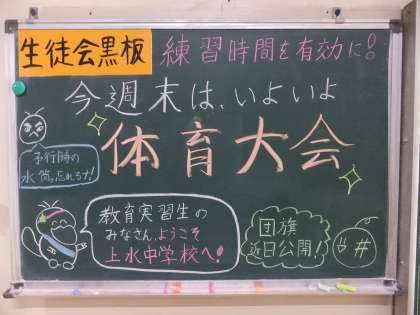 生徒会黒板
練習時間を有効に!
今週末は、いよいよ
体育大会
予行時の
水筒忘れるな!
教育実習生の
みなさん、ようこそ
上水中学校へ!
団旗
近日公開!
#